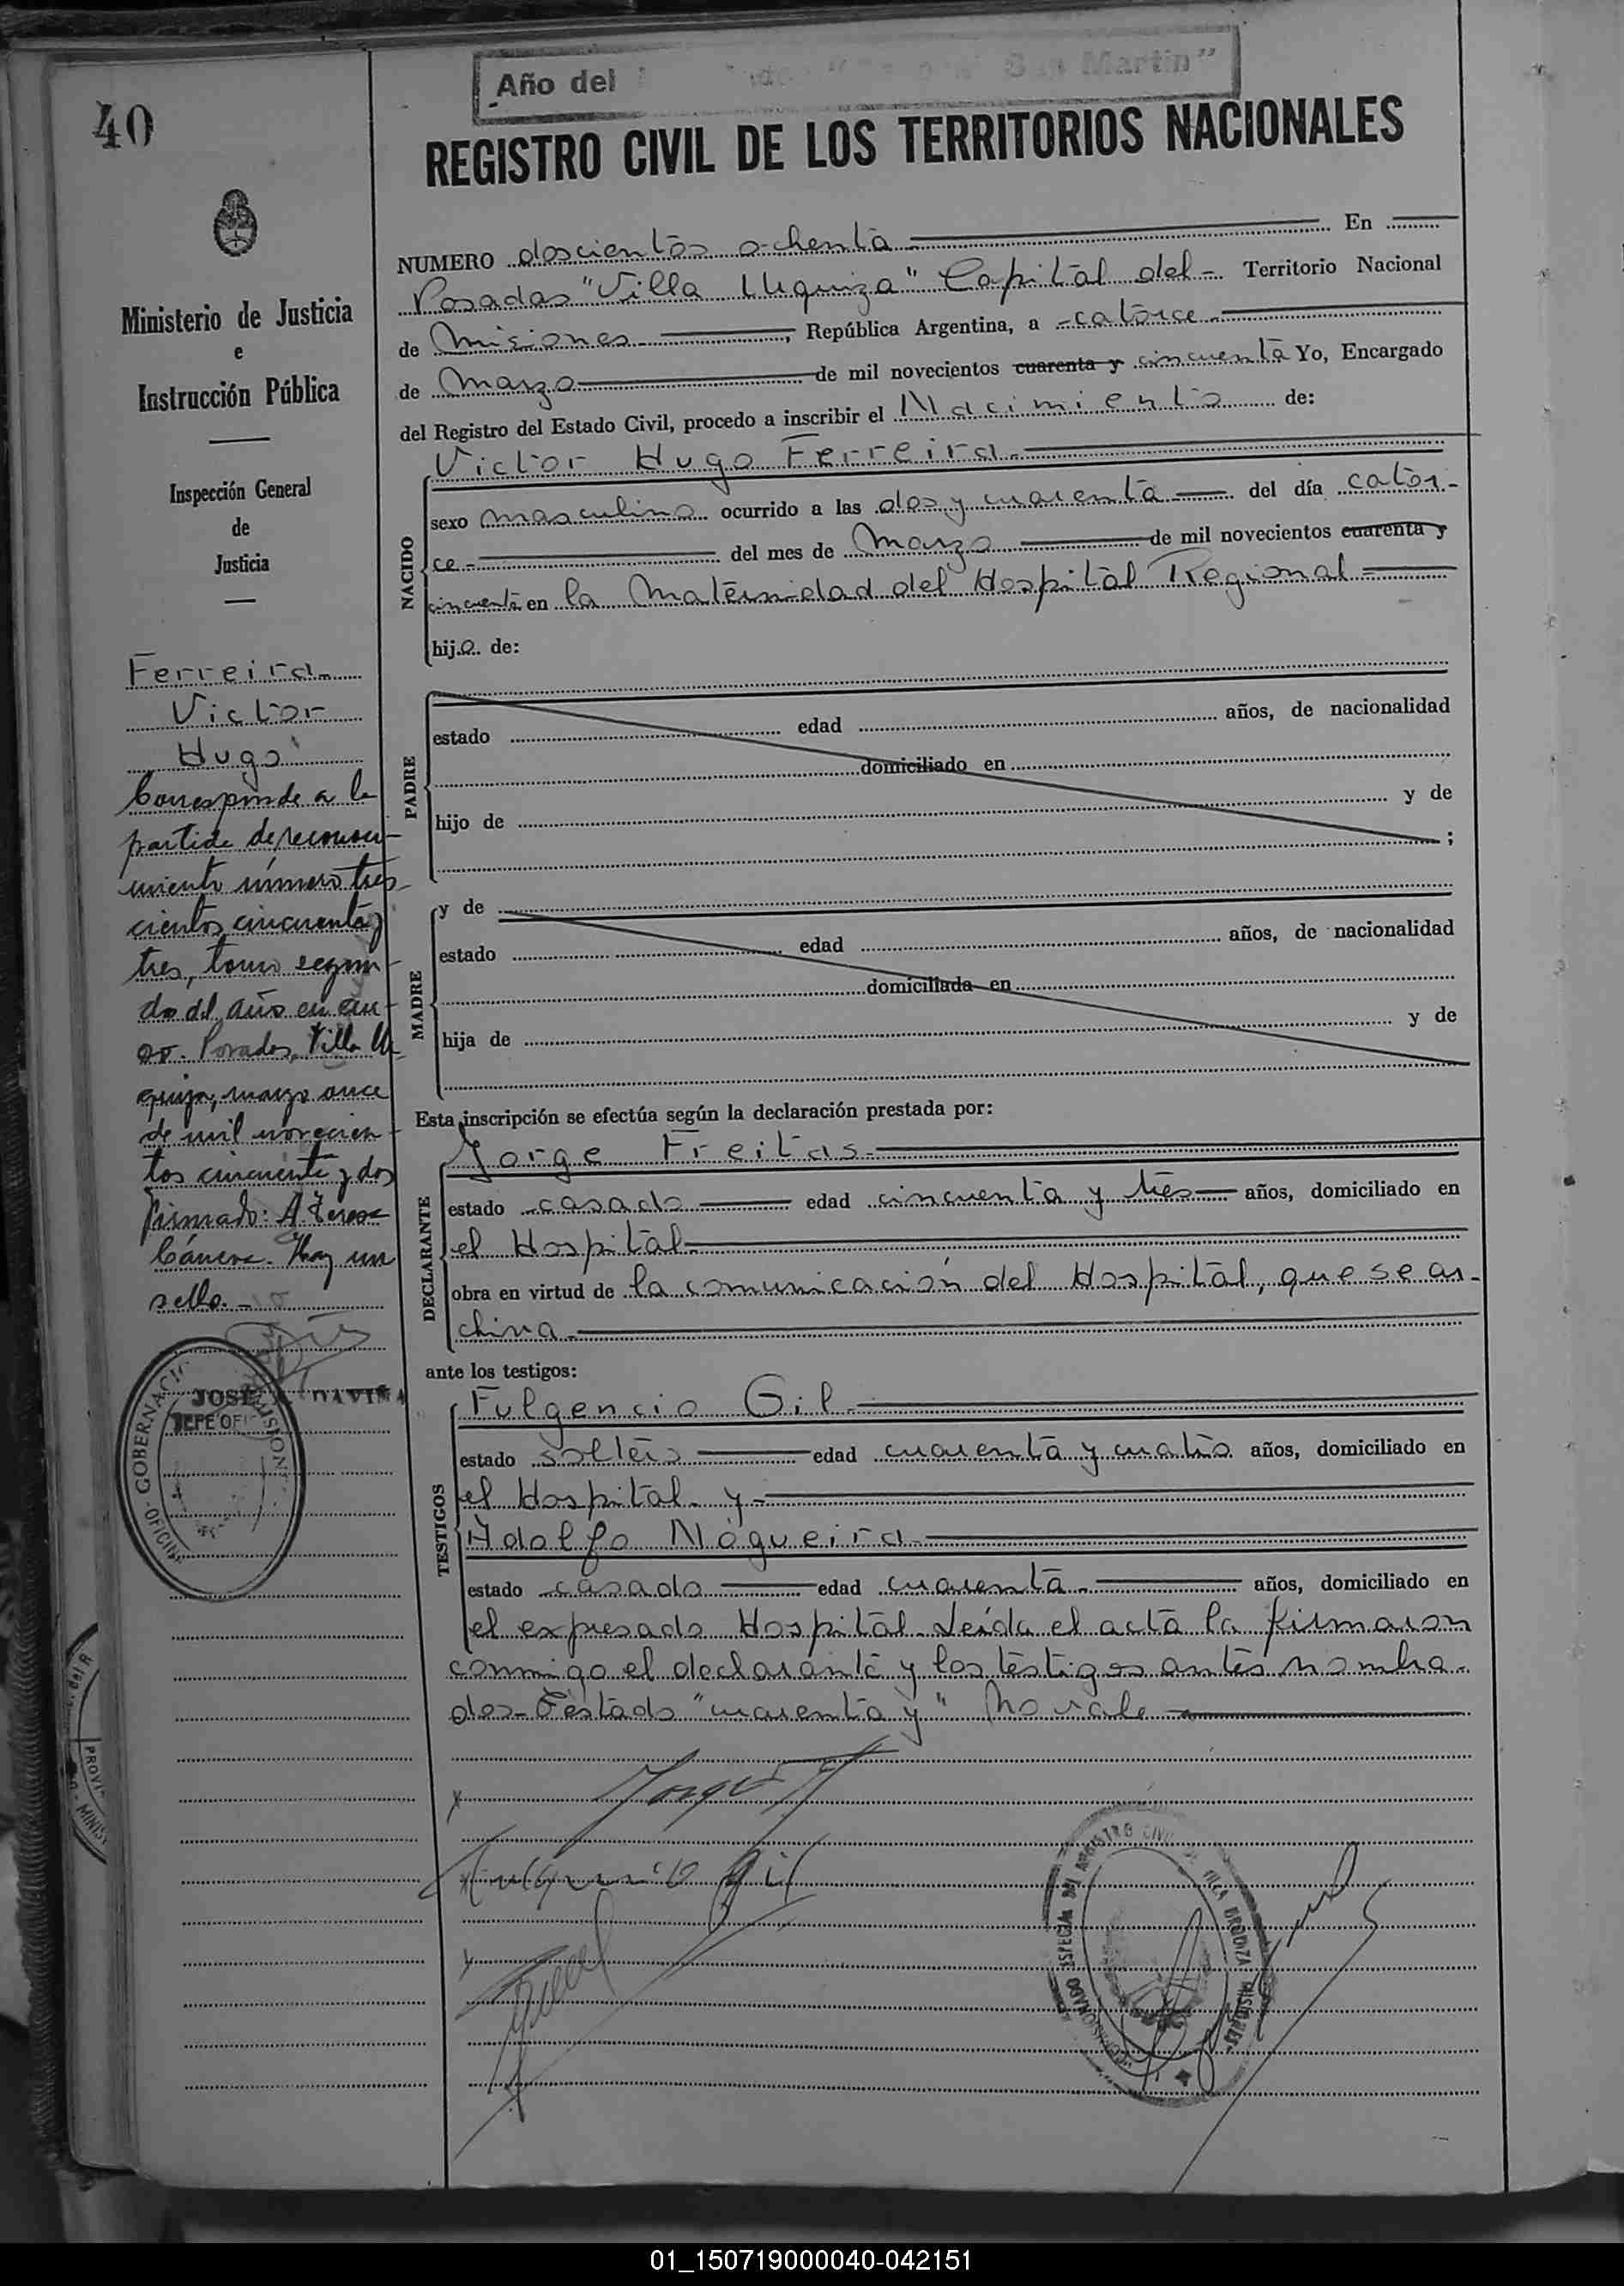 Año del San Martin"
40
REGISTRO CIVIL DE LOS TERRITORIOS NACIONALES
NUMERO doscientos ochenta En
Posadas "Villa Urquiza" Capital del Territorio Nacional
de Misiones, República Argentina, a catorce
de Marzo de mil novecientos cuarenta y cincuenta Yo, Encargado
del Registro del Estado Civil, procedo a inscribir el Nacimiento de:
NACIDO
Victor Hugo Ferreira
sexo masculino ocurrido a las dos y cuarenta del día cator-
ce del mes de Marzo de mil novecientos cuarenta y
cincuenta en la Maternidad del Hospital Regional
hijo de:
PADRE
estado edad años, de nacionalidad
domiciliado en
hijo de y de
;
MADRE
y de
estado edad años, de nacionalidad
domiciliada en
hija de y de
Esta inscripción se efectúa según la declaración prestada por:
DECLARANTE
Jorge Freitas
estado casado edad cincuenta y tres años, domiciliado en
el Hospital
obra en virtud de la comunicación del Hospital, que se ar-
chiva
ante los testigos:
TESTIGOS
Fulgencio Gil
estado soltero edad cuarenta y cuatro años, domiciliado en
el Hospital y
Adolfo Nogueira
estado casado edad cuarenta años, domiciliado en
el expresado Hospital. Leída el acta la firmaron
conmigo el declarante y los testigos antes nombra-
dos. Testado "cuarenta y" No vale
Fulgencio Gil
REGISTRO CIVIL VILLA URQUIZA MISIONES
Ministerio de Justicia
e
Instrucción Pública
Inspección General
de
Justicia
Ferreira
Victor
Hugo
Corresponde a la
partida de reconoci-
miento número tres-
cientos cincuenta y
tres, tomo segun-
do del año en cur-
so. Posadas, Villa Ur
quiza, marzo once
de mil novecien-
tos cincuenta y dos
firmado: A. Teresa
Cánova. Hay un
sello.
JOSÉ DAVIÑA
JEFE OFI
GOBERNACI MISIONE OFICIN
PROVI
MINIS
01_150719000040-042151